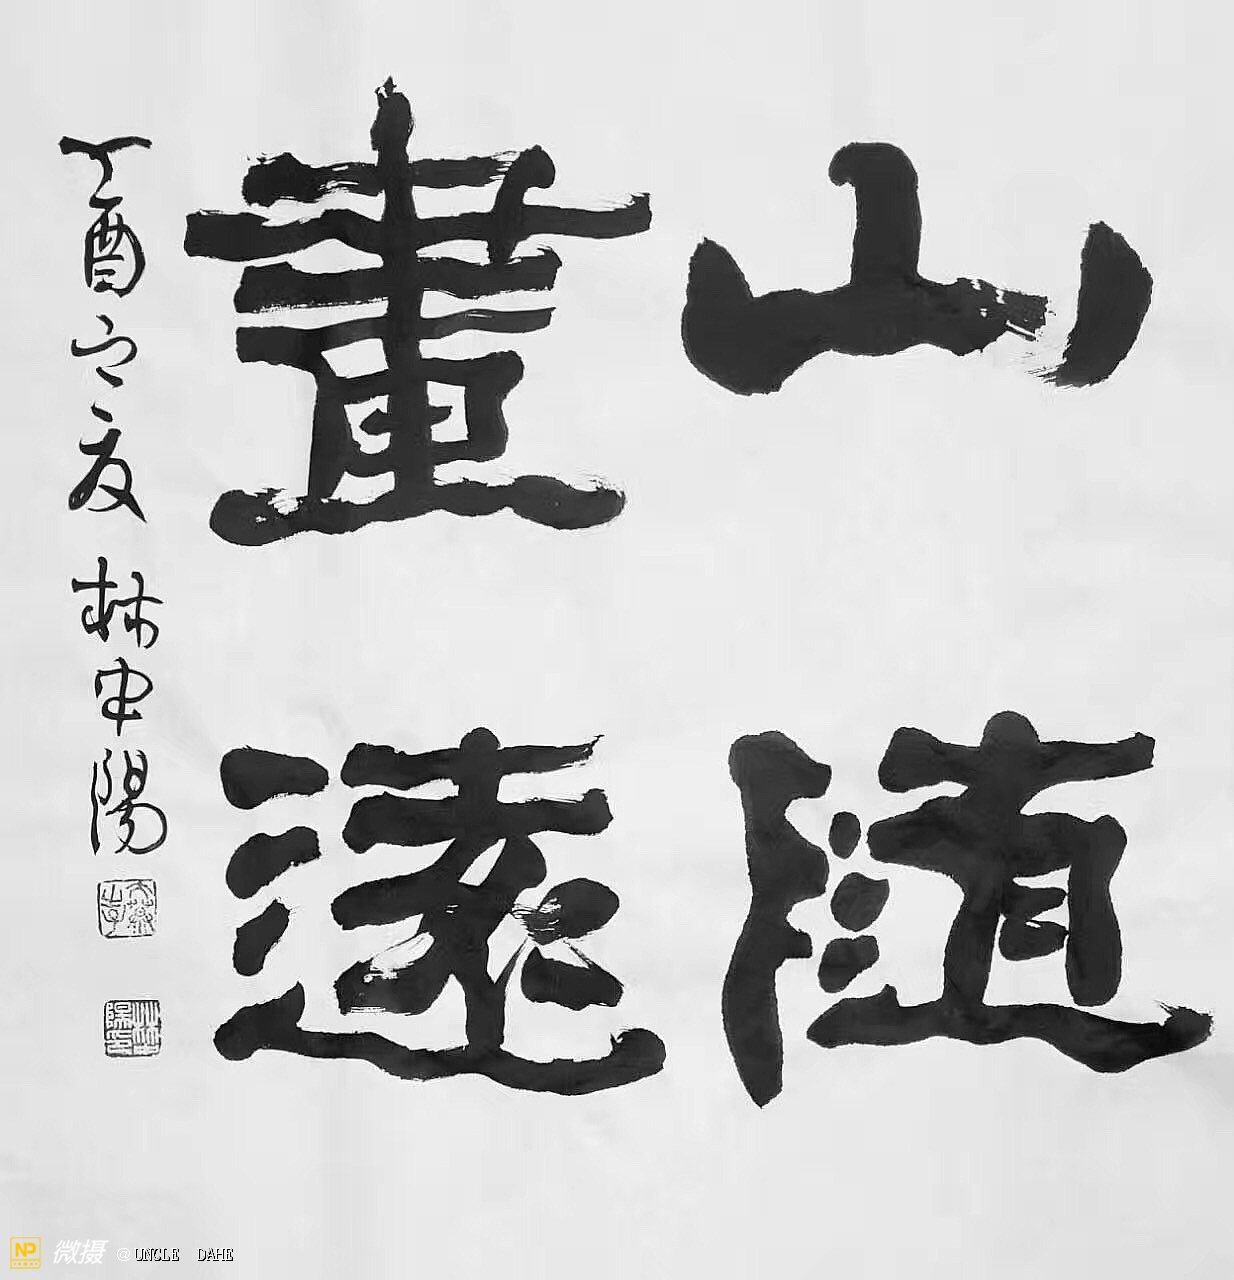 山随
畫遠
丁酉之夏 林申陽
NP 微摄 @UNCLE DAHE